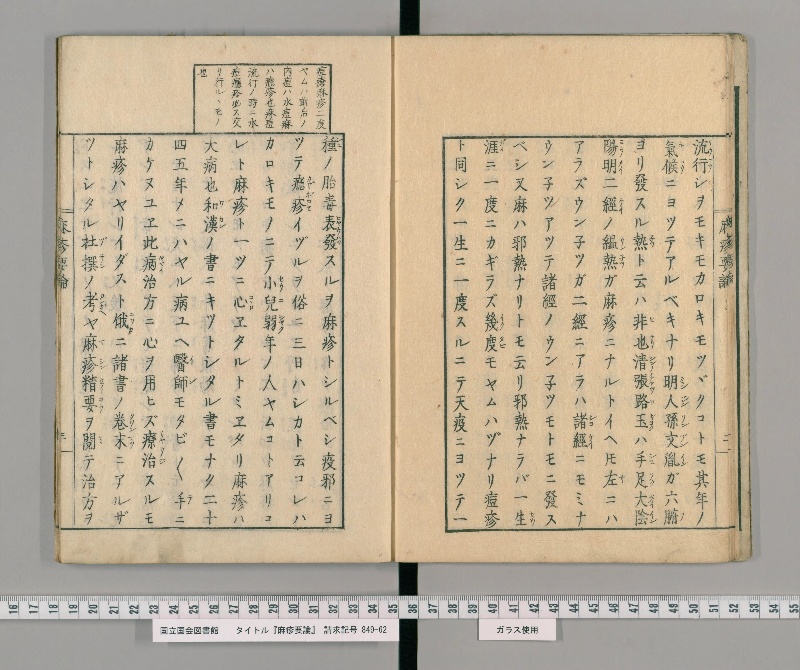 流行シヲモキモカロキモツヾクコトモ其年ノ
氣候ニヨツテアルベキナリ明人孫文胤ガ六腑
ヨリ發スル熱ト云ハ非也清張路玉ハ手足大陰
陽明二經ノ縕熱ガ麻疹ニナルトイヘ𪜈左ニハ
アラズウン子ツガ二經ニアラハ諸經ニモミナ
ウン子ツアツテ諸經ノウン子ツモトモニ發ス
ベシ又麻ハ邪熱ナリトモ云リ邪熱ナラバ一生
涯ニ一度ニカギラズ幾度モヤムハヅナリ痘疹
ト同シク一生ニ一度スルニテ天疫ニヨツテ一
麻疹要論
二
痘瘡麻疹二度
ヤムハ前后ノ
内痘ハ水痘麻
ハ癮疹也麻痘
流行ノ時ニ水
痘癮疹必ス交
リ行ルヽモノ
也
種ノ胎毒表發スルヲ麻疹トシルベシ疫邪ニヨ
ツテ癮疹イヅルヲ俗ニ三日ハシカト云コレハ
カロキモノニテ小兒弱年ノ人ヤムコトアリコ
レト麻疹ト一ツニ心ヱタルトミヱタリ麻疹ハ
大病也和漢ノ書ニキツトシタル書モナク二十
四五年メニハヤル病ユヘ醫師モタビ〱手ニ
カケヌユヱ此病治方ニ心ヲ用ヒズ療治スルモ
麻疹ハヤリイダスト俄ニ諸書ノ巻末ニアルザ
ツトシタル杜撰ノ考ヤ麻疹精要ヲ閲テ治方ヲ
麻疹要論
三
国立国会図書館 タイトル『麻疹要論』 請求記号 849-62
ガラス使用
16 17 18 19 20 21 22 23 24 25 26 27 28 29 30 31 32 33 34 35 36 37 38 39 40 41 42 43 44 45 46 47 48 49 50 51 52 53 54 55